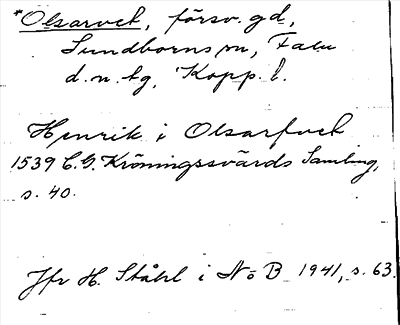 *Olsarvet, försv. gd,
Sundborns sn, Falu
d.n. tg, Kopp. l.
Henrik i Olsarfvet
1539 C.G. Kröningssvärds Samling,
s. 40.
Jfr H. Ståhl i NoB 1941, s. 63.